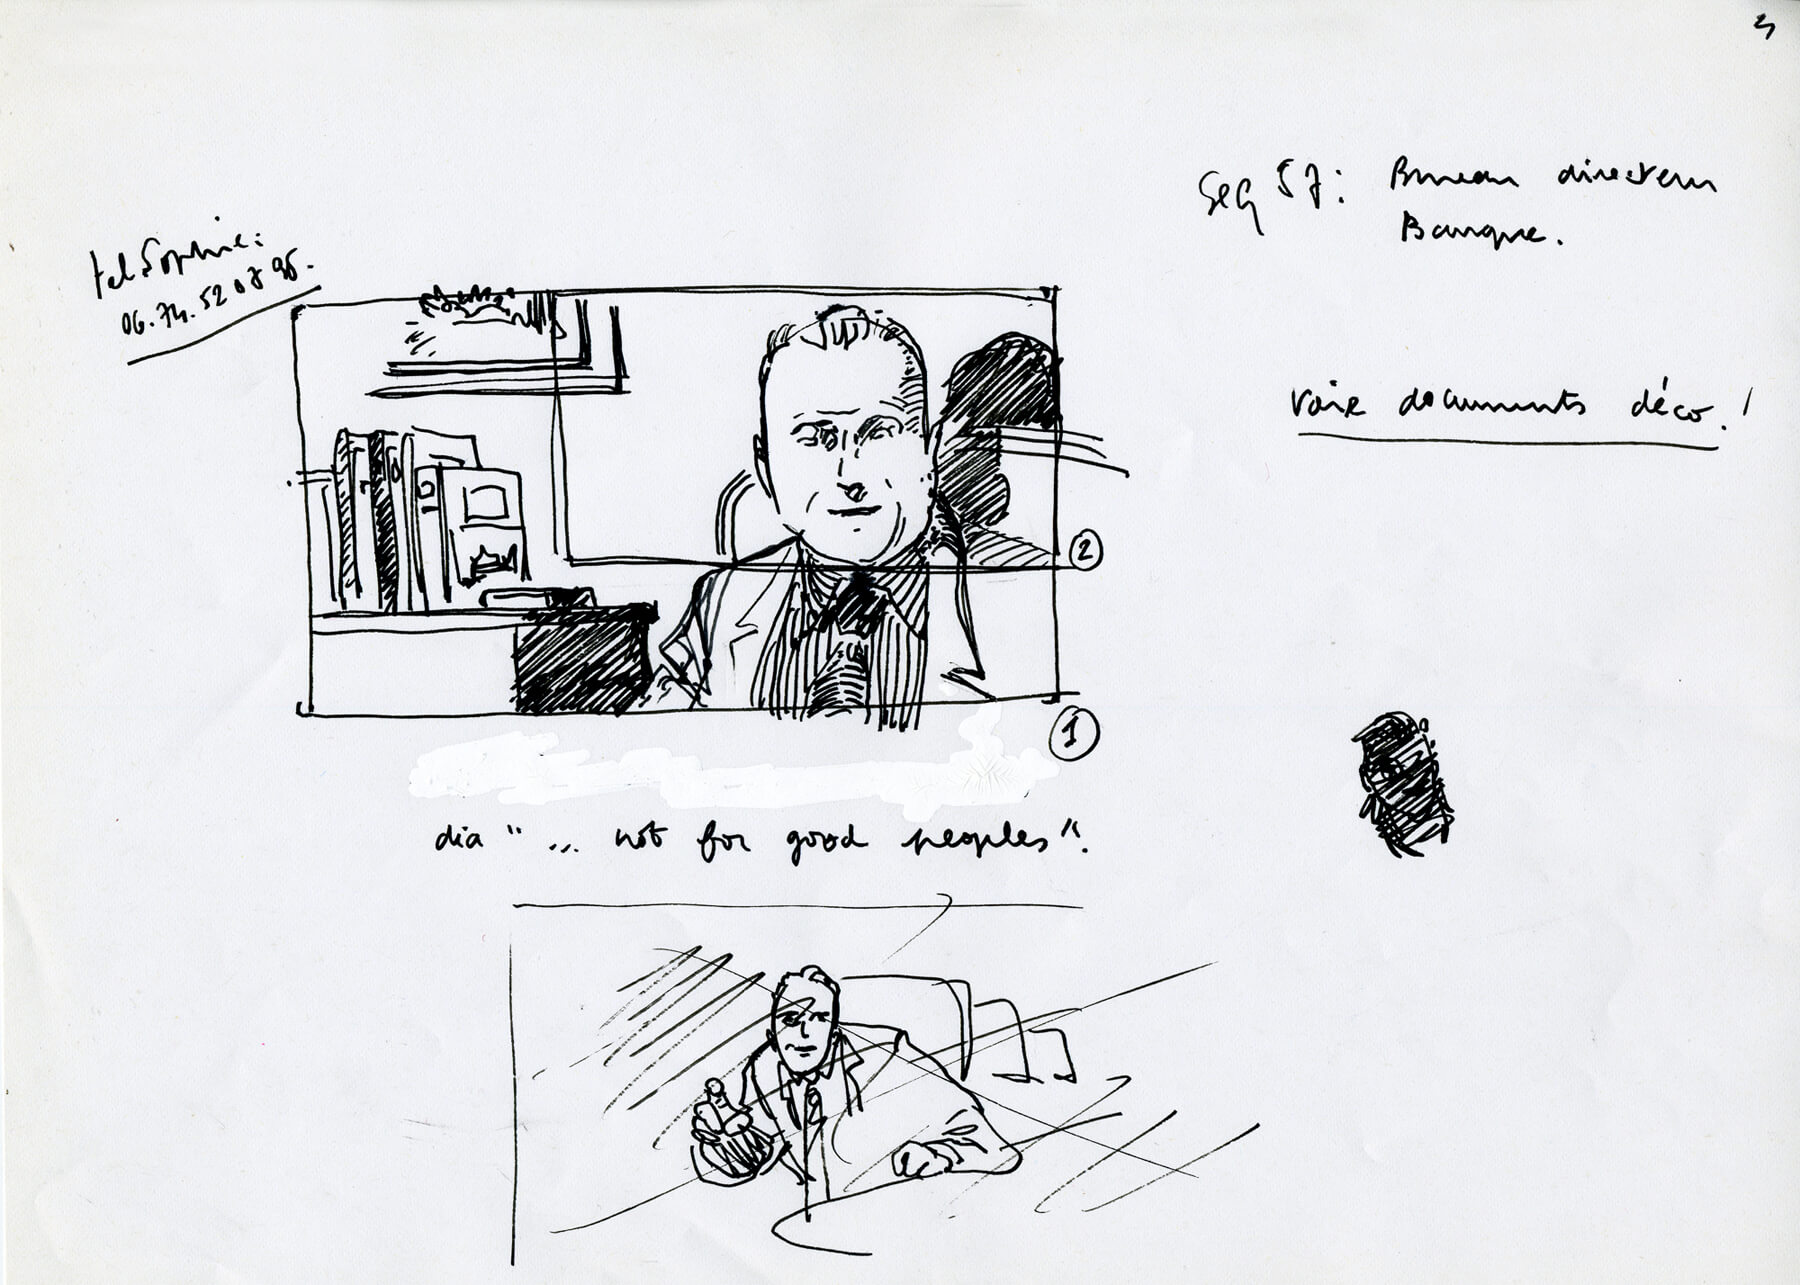 tel Sophie:
06.74.52 07 96.
Seq 57: Bureau directeur
Banque.
voir documents déco.!
2
1
dia "... not for good peoples".